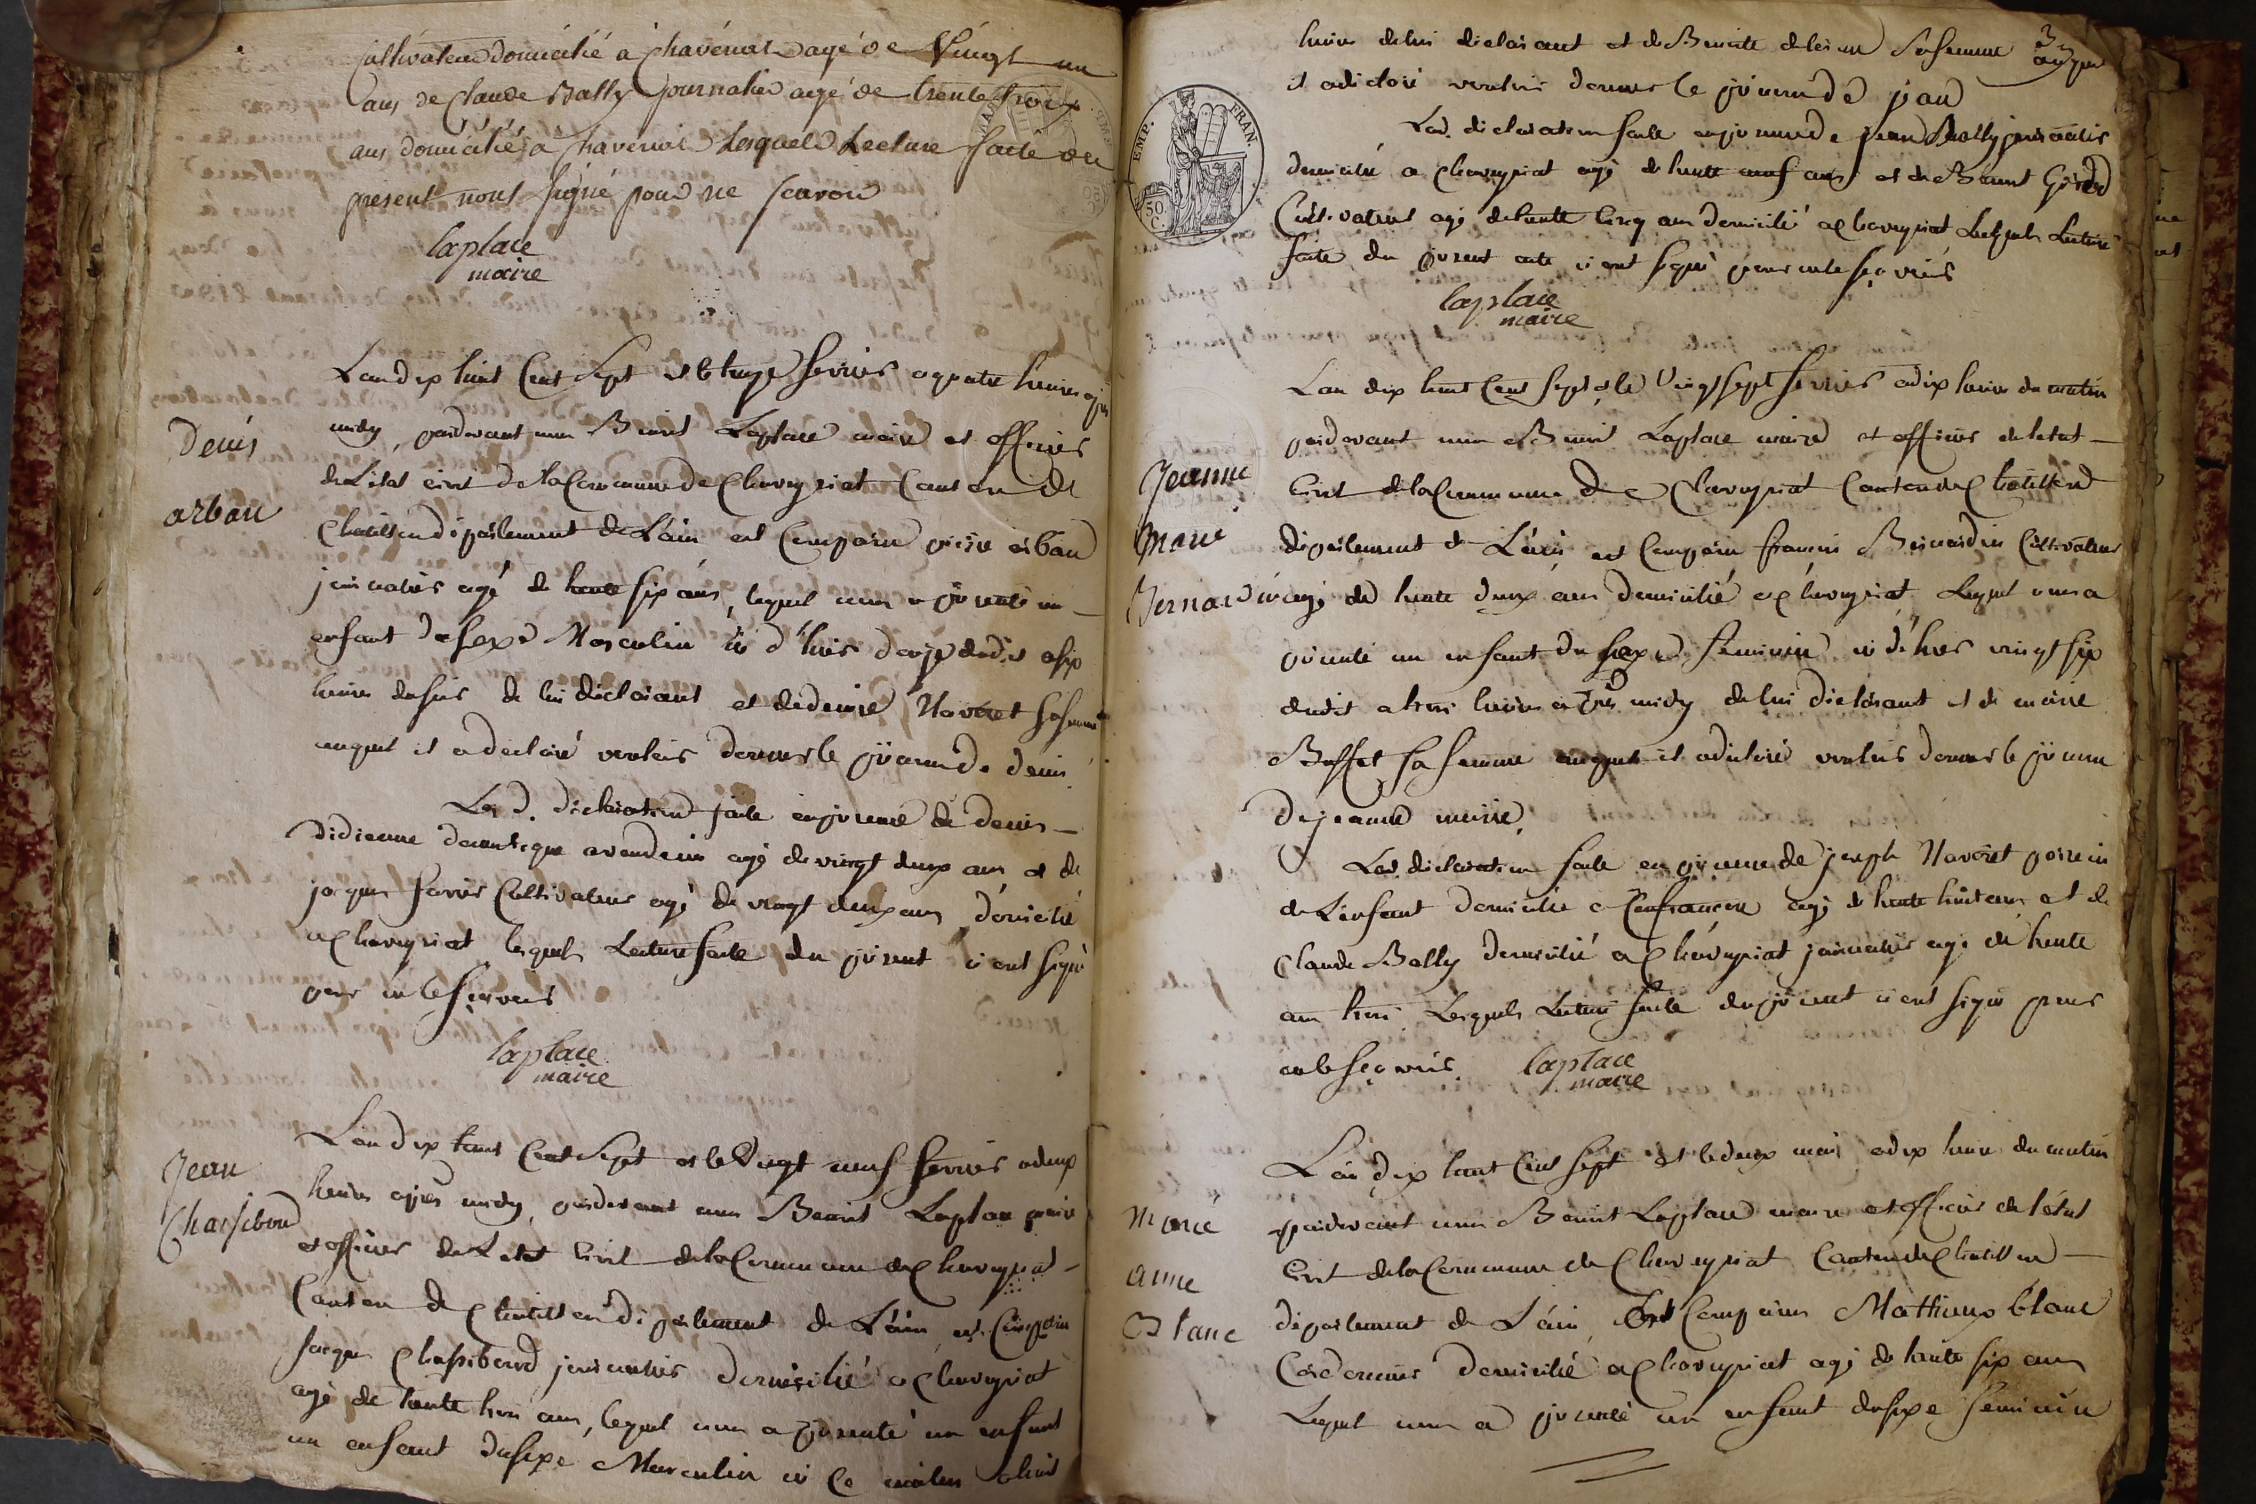 Cultivateur domicilié à Chaveÿriat agé de Vingt un
ans de Claude Bally journalier agé de trente trois
ans domicilié à Chaveÿriat Lesquels Lecture faite du
présent nont signé pour ne scavoir
laplace
maire
Denis
arban
Lan dix huit Cent Sept et le treize fevrier a quatre heures apres
midy, pardevant nous Benoit Laplace maire et officier
de Létat civil de la Commune de Chaveyriat Canton de
Chatillon département de Láin est Comparu arban
journalier agé de trente six ans, lequel nous a présenté un
enfant du sexe Masculin né d'hier douze dudit a six
heures du soir de lui déclarant et de denise Navoret sa femme
auquel il a declaré vouloir donner le prénom de denis
Lesd. déclaration faite en présence de denis
didienne domestique a agé de vingt deux ans et de
jacques favier Cultivateur agé de vingt deux ans domicilié
a Chaveyriat lesquels Lecture faite du présent n'ont signé
pour ne le sçavoir
laplace
maire
Jean
Chassiboud
Lan dix huit Cent Sept et le Vingt neuf fevrier a deux
heures après midy, pardevant nous Benoit Laplace maire
et officier de Létat Civil de la Commune de Chaveyriat
Canton de Chatillon département de Láin est Comparu
jacques Chassiboud journalier domicilié a Chaveyriat
agé de trente trois ans, lequel nous a présenté un enfant
un enfant du sexe Masculin né Ce matin a huit
3
heures de lui déclarant et de Benoite sa femme auquel
il a déclaré vouloir donner le prénom de jean
Lad. déclaration faite en présence de jean Bally journalier
domicilié a Chaveyriat agé de trente neuf ans et de Benoit
Cultivateur agé de trente Cinq ans domicilié a Chaveyriat Lesquels Lecture
faite du présent acte n'ont signé pour ne le sçavoir
laplace
maire
EMP. FRAN.
50 C.
Jeanne
Marie
Bernardin
Lan dix huit Cent Sept et le Vingt sept fevrier a dix heures du matin
pardevant nous Benoit Laplace maire et officier de létat
Civil de la Commune de Chaveyriat Canton de Chatillon
département de Láin est Comparu francois Bernardin Cultivateur
agé de trente deux ans domicilié a Chaveyriat Lequel nous a
présenté un enfant du sexe féminin né d'hier vingt six
dudit a trois heures après midy de lui déclarant et de marie
Buffet sa femme auquel il a déclaré vouloir donner le prénom
de jeanne marie
Lad. déclaration faite en présence de joseph Navoret parrin
de L'enfant domicilié a Confrancon agé de trente huit ans et de
Claude Bally domicilié a Chaveyriat journalier agé de trente
ans trois Lesquels Lecture faite du présent n'ont signé pour
ne le sçavoir. laplace
maire
Marie
anne
Blanc
Lan dix huit Cent Sept et le deux mars a dix heures du matin
pardevant nous Benoit Laplace maire et officier de létat
Civil de la Commune de Chaveyriat Canton de Chatillon
département de Láin, Est Comparu Mathieux blanc
Cordonnier domicilié a Chaveyriat agé de trente six ans
Lequel nous a présenté un enfant du sexe féminin